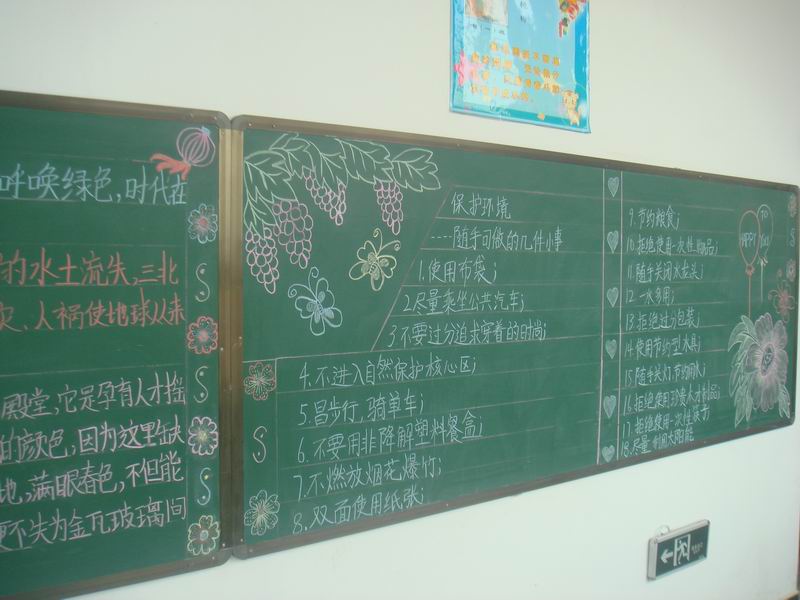 呼唤绿色,时代在
的水土流失,三北
灾、人祸使地球从来
殿堂,它是孕育人才摇
的颜色,因为这里缺
地,满眼春色,不但能
便不失为金瓦玻璃间
保护环境
----随手可做的几件小事
1.使用布袋;
2.尽量乘坐公共汽车;
3.不要过分追求穿着的时尚;
4.不进入自然保护核心区;
5.昌步行,骑单车;
6.不要用非降解塑料餐盒;
7.不燃放烟花爆竹;
8.双面使用纸张;
9.节约粮食;
10.拒绝使用一次性用品;
11.随手关闭水龙头;
12.一水多用;
13.拒绝过度包装;
14.使用节约型水具;
15.随手关灯节约用电;
16.拒绝使用珍贵木材制品;
17.拒绝使用一次性筷子;
18.尽量利用太阳能
HAPPY
TO
YOU